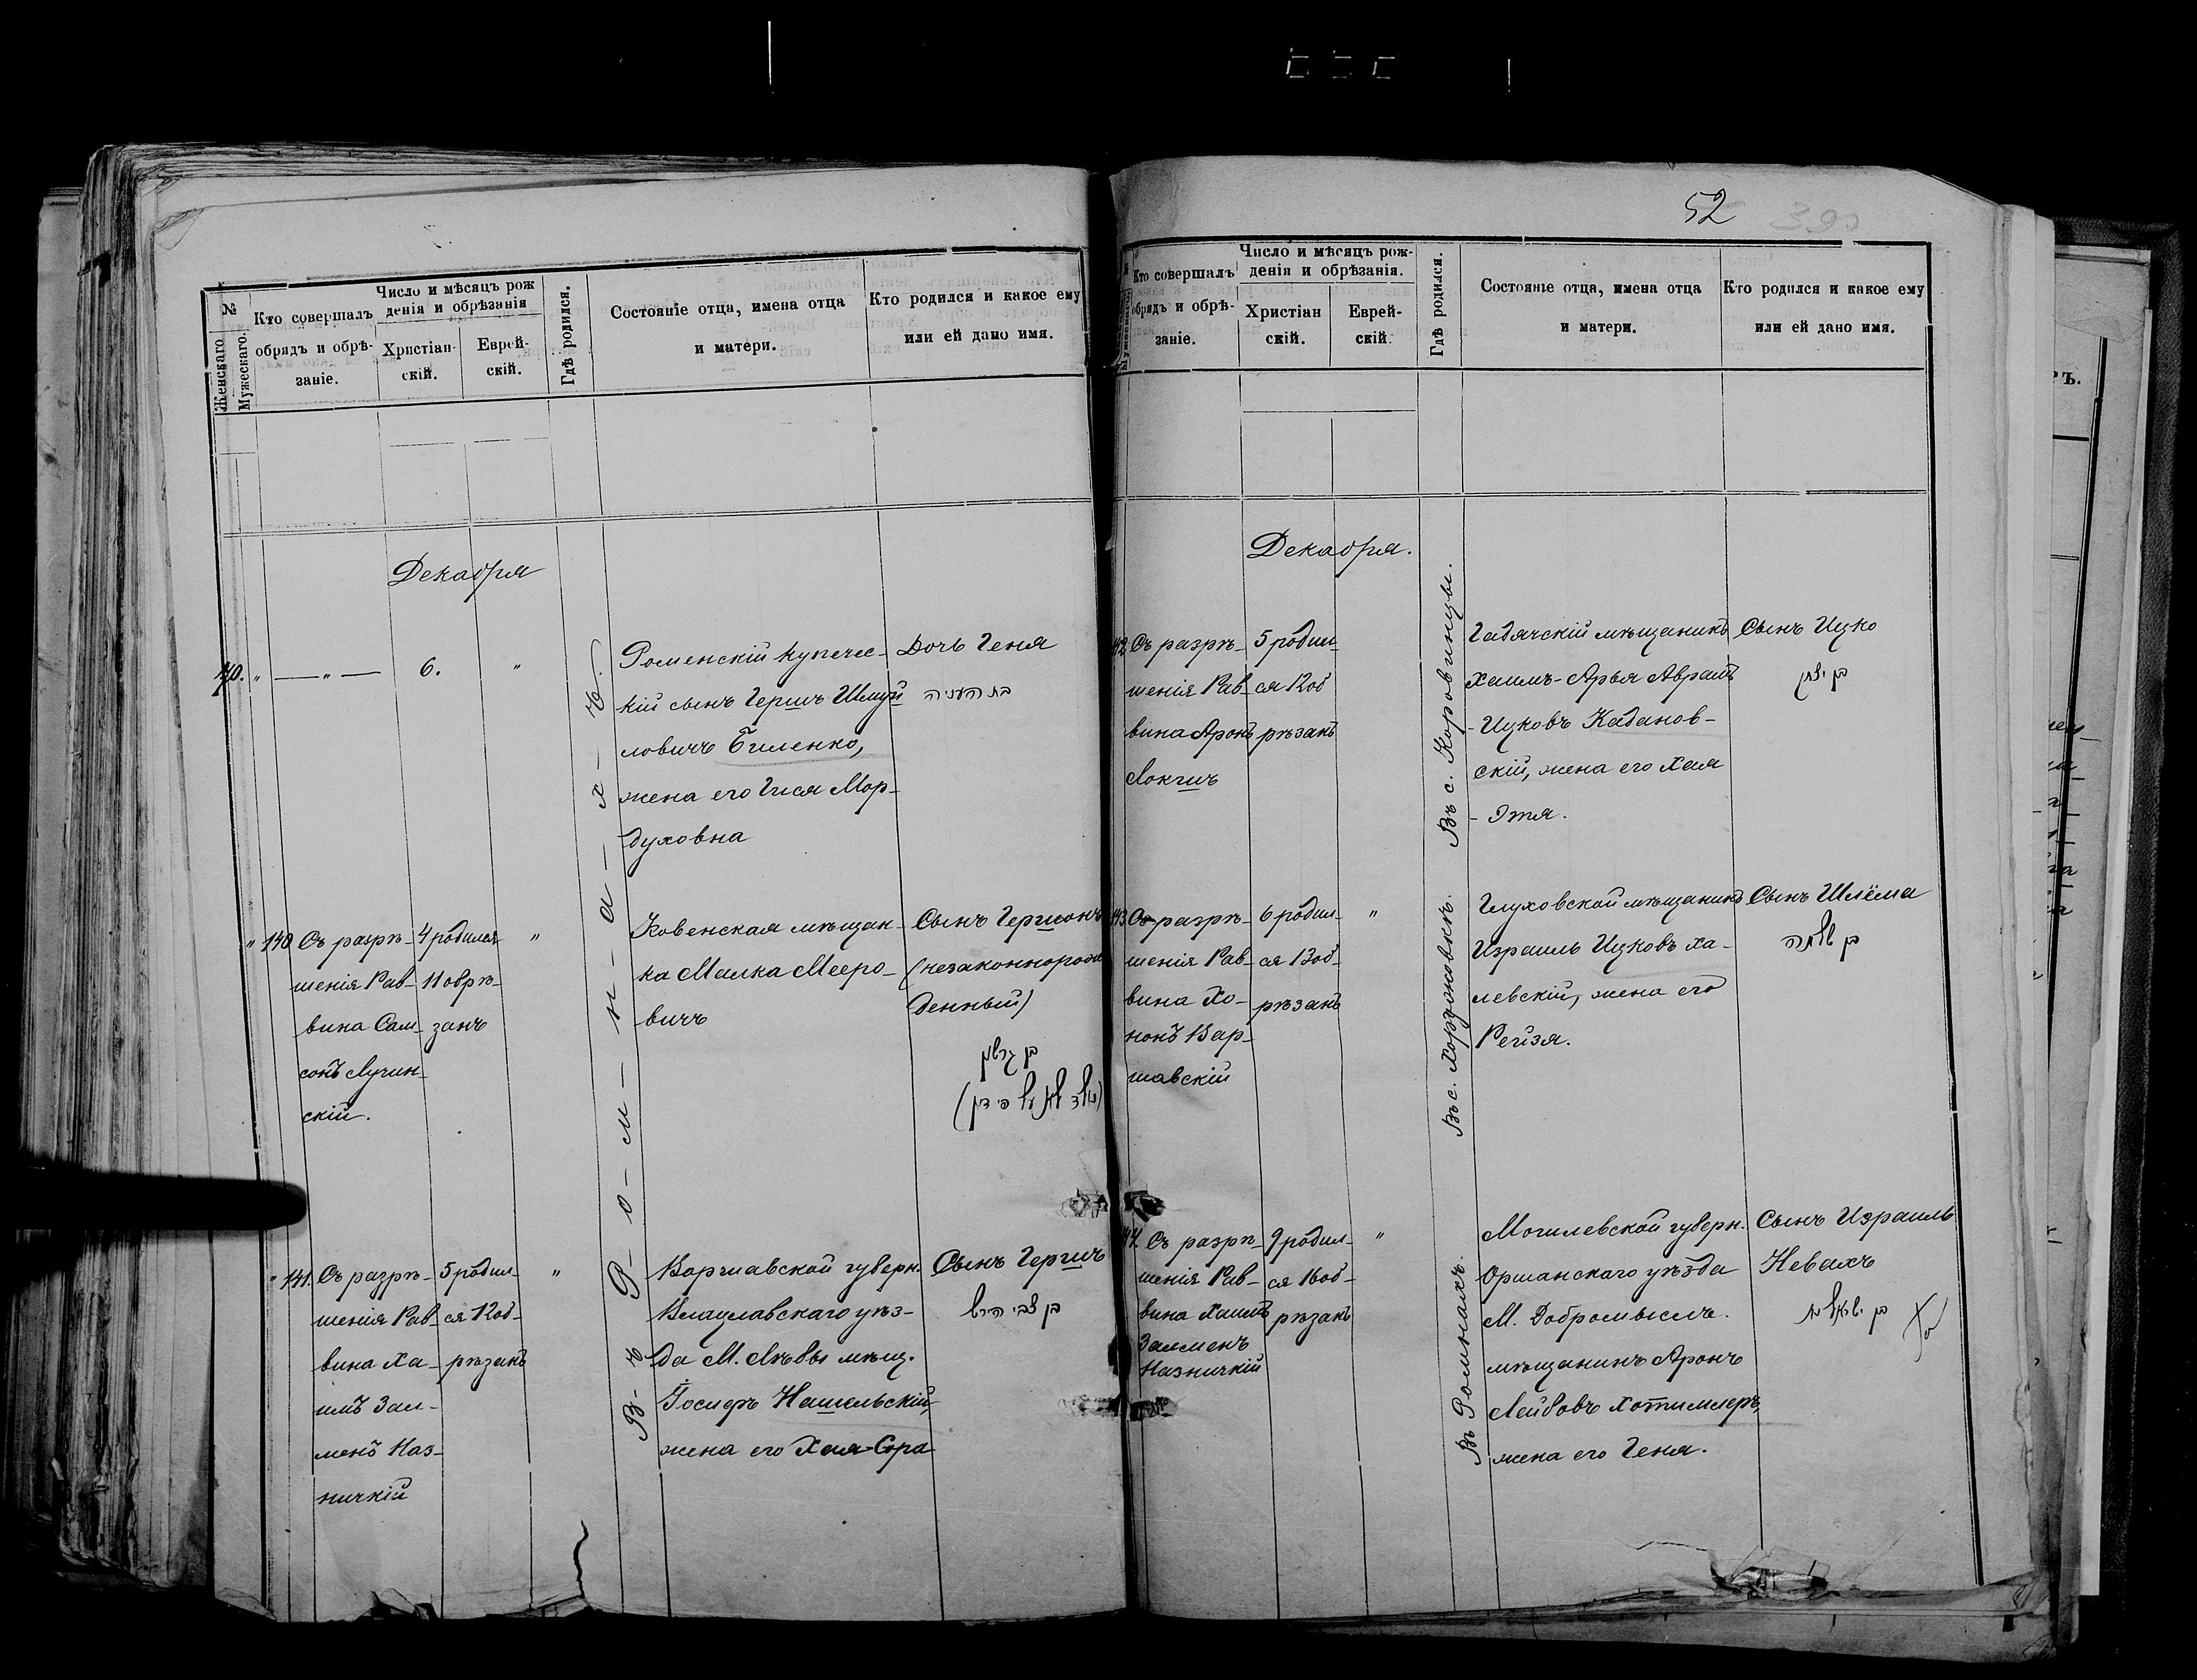 52
№
Женскаго.
Мужескаго.
Кто совершалъ
обрядъ и обрѣ-
заніе.
Число и мѣсяцъ рож
денія и обрѣзанія
Христіан-
скій.
Еврей-
скій.
Гдѣ родился.
Состояніе отца, имена отца
и матери.
Кто родился и какое ему
или ей дано имя.
Декабря
В-ъ Р-о-м-н-а-х-ъ.
140. " — " — 6. "
Роменскій купечес-
кій сынъ Гершъ Шмуй
ловичъ Биленко,
жена его Гися Мор-
духовна
Дочь Геня
בת העניה
" 140
Съ разрѣ-
шенія Рав-
вина Сам-
сонъ Лучин-
скій.
4 родился
11 обрѣ-
занъ
"
Ковенская мѣщан-
ка Малка Мееро-
вичъ
Сынъ Гершонъ
(незаконнорож
денный)
בן גרשון
" 141.
Съ разрѣ-
шенія Рав-
вина Ха-
имъ Зал-
менъ Наз-
ничкій
5 родил-
ся 12 об-
рѣзанъ
"
Варшавской губерн.
Влацлавскаго уѣз-
да М. Лѣвы мѣщ.
Іосифъ Нашельскій,
жена его Хая-Сора
Сынъ Гершъ
בן צבי הירש
Кто совершалъ
обрядъ и обрѣ-
заніе.
Число и мѣсяцъ рож-
денія и обрѣзанія.
Христіан
скій.
Еврей-
скій.
Гдѣ родился.
Состояніе отца, имена отца
и матери.
Кто родился и какое ему
или ей дано имя.
Декабря.
142
Съ разрѣ-
шенія Рав-
вина Аронъ
Локшъ
5 родил-
ся 12 об
рѣзанъ
Въ с. Коровинцы.
Гадячскій мѣщанинъ
Хаимъ-Арья Аврамъ
-Ицковъ Кадanов-
скій, жена его Хая
- Этя.
Сынъ Ицко
בן יצחק
143
Съ разрѣ-
шенія Рав-
вина Хо-
нонъ Вар-
шавскій
6 родил-
ся 13 об-
рѣзанъ
"
Въ с. Хоружовкѣ.
Глуховской мѣщанинъ
Израиль Ицковъ Ха-
левскій, жена его
Рейзя.
Сынъ Шлёма
בן שלמה
144
Съ разрѣ-
шенія Рав-
вина Хаимъ
Залменъ
Назничкій
9 родил-
ся 16 об-
рѣзанъ
"
Въ Ромнахъ.
Могилевской губерн.
Оршанскаго уѣзда
М. Добромыслъ.
мѣщанинъ Аронъ
Лейбовъ Хотимлеръ,
жена его Геня.
Сынъ Израиль
Невахъ